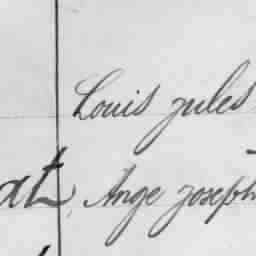 Louis jules
at, Ange joseph